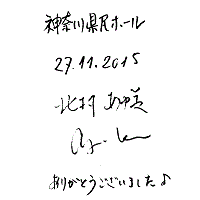 神奈川県民ホール
27.11.2015
北村 あゆ美
ありがとうございました♪